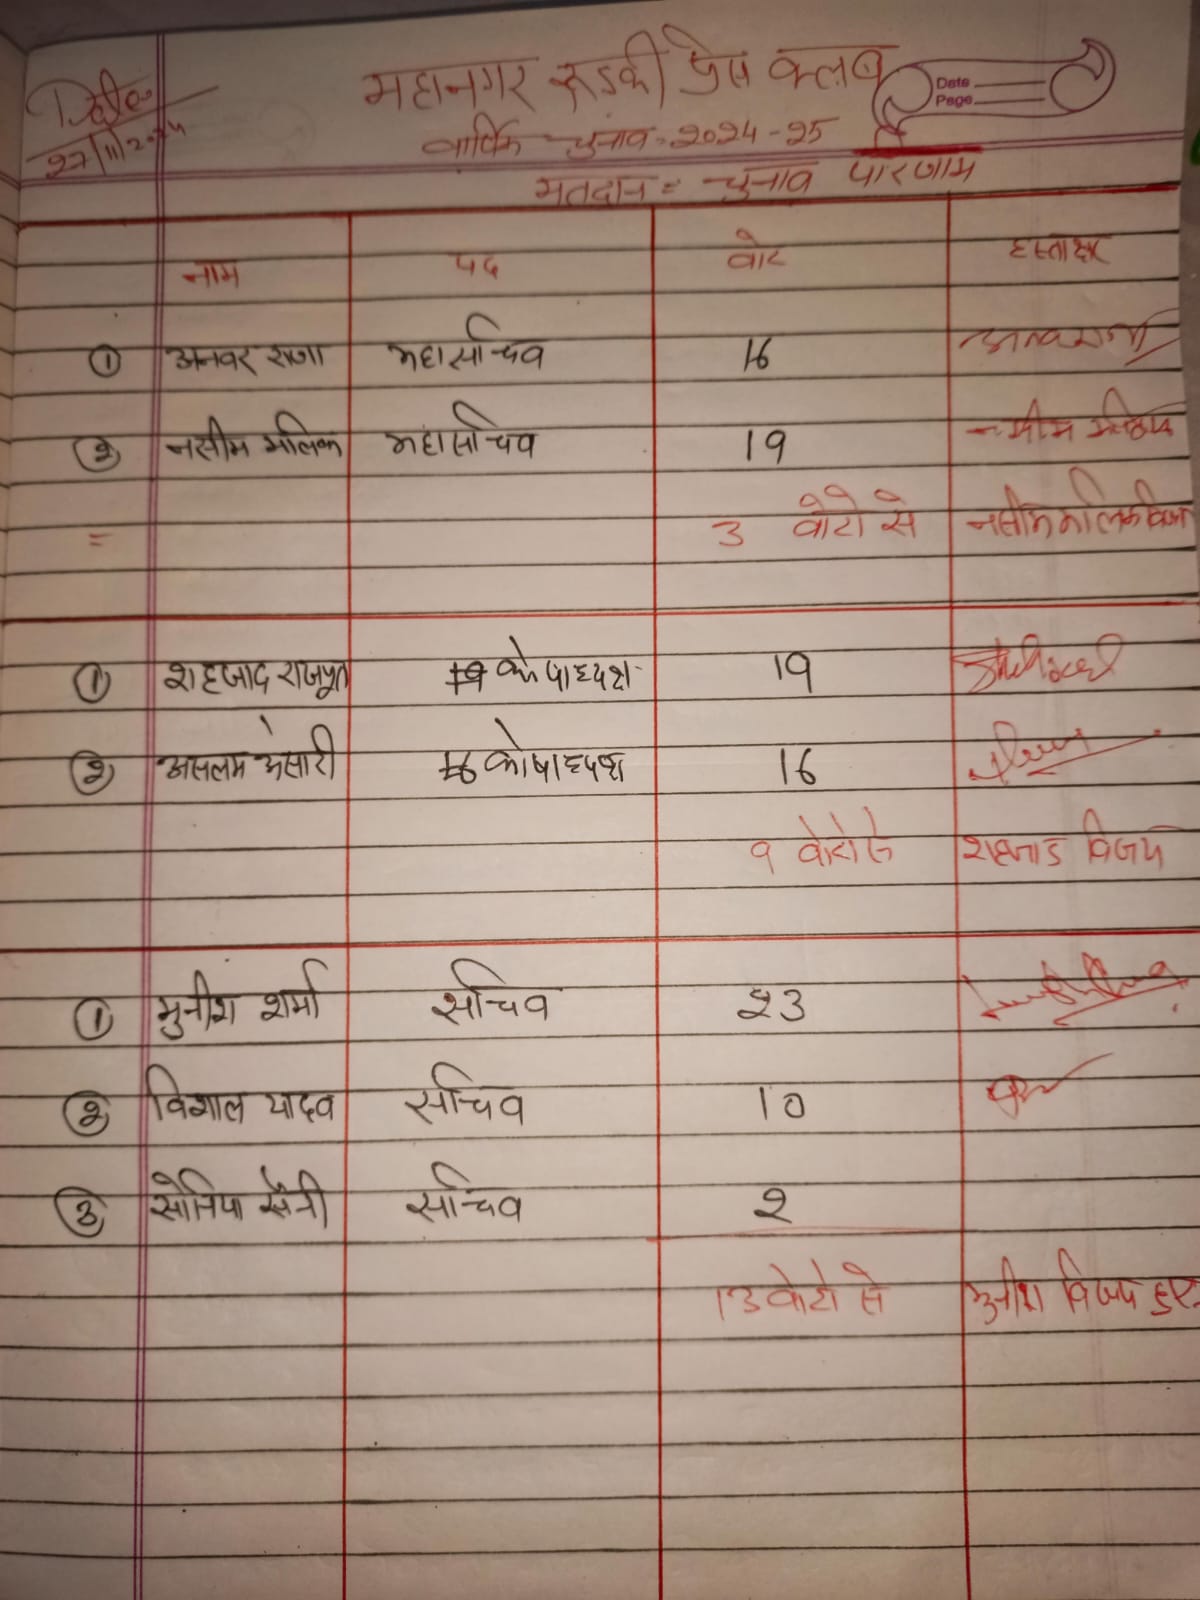 महानगर रूडकी प्रेस क्लब
Date
Page
Date
27/11/2024
वार्षिक चुनाव-2024-25
मतदान = चुनाव परिणाम
नाम पद वोट हस्ताक्षर
① अनवर राणा महासचिव 16
② नसीम मलिक महासचिव 19 नसीम मलिक
= 3 वोटो से नसीम मलिक
① शहजाद राजपूत कोषाध्यक्ष 19
② असलम अंसारी कोषाध्यक्ष 16
वोटो से शहजाद विजय
① मुनीश शर्मा सचिव 23
② विशाल यादव सचिव 10
③ सोनिया सैनी सचिव 2
13 वोटो से मुनीश विजय हुए